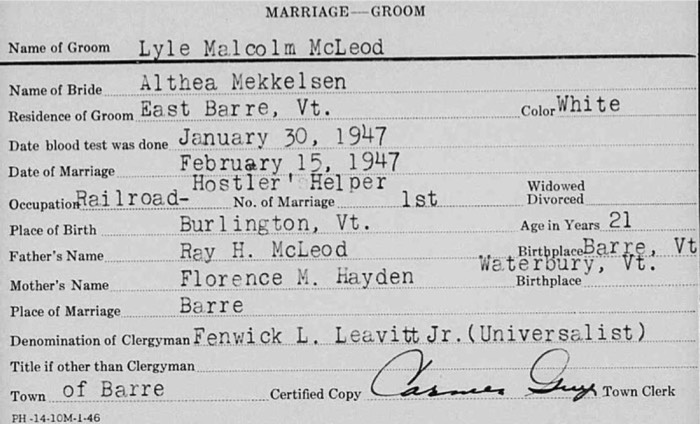 MARRIAGE—GROOM
Name of Groom Lyle Malcolm McLeod
Name of Bride Althea Mekkelsen
Residence of Groom East Barre, Vt. Color White
Date blood test was done January 30, 1947
Date of Marriage February 15, 1947
Hostler' Helper
Occupation Railroad- No. of Marriage 1st Widowed
Divorced
Place of Birth Burlington, Vt. Age in Years 21
Father's Name Ray H. McLeod Birthplace Barre, Vt
Waterbury, Vt.
Mother's Name Florence M. Hayden Birthplace
Place of Marriage Barre
Denomination of Clergyman Fenwick L. Leavitt Jr.(Universalist)
Title if other than Clergyman
Town of Barre Certified Copy Town Clerk
PH-14-10M-1-46